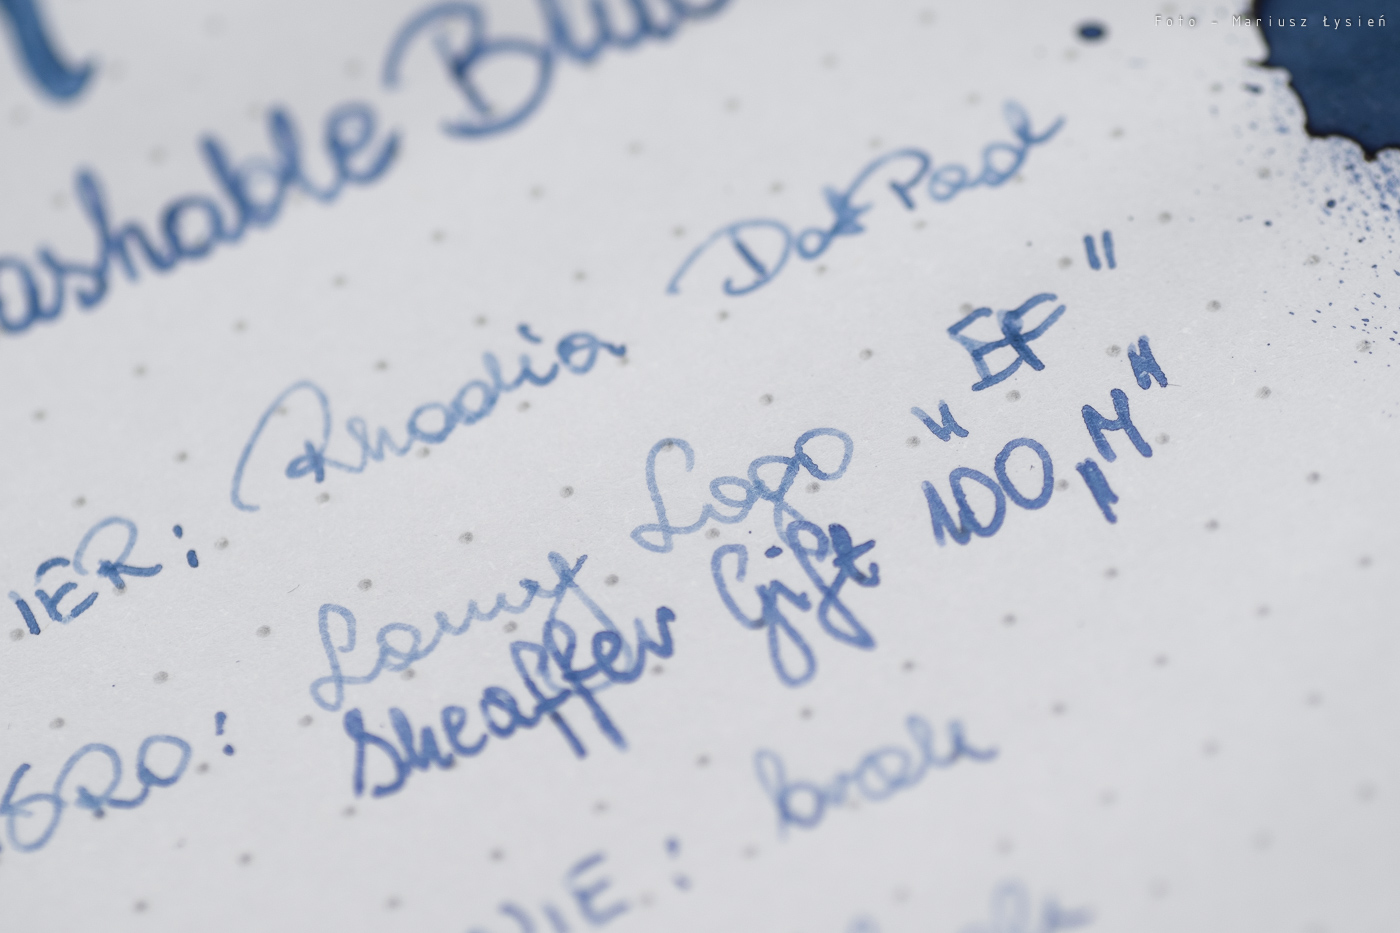 Foto - Mariusz Łysień
ashable Blue
IER: Rhodia DotPad
ÓRO: Lamy Logo "EF"
Sheaffer Gift 100 „M"
NIE: brak